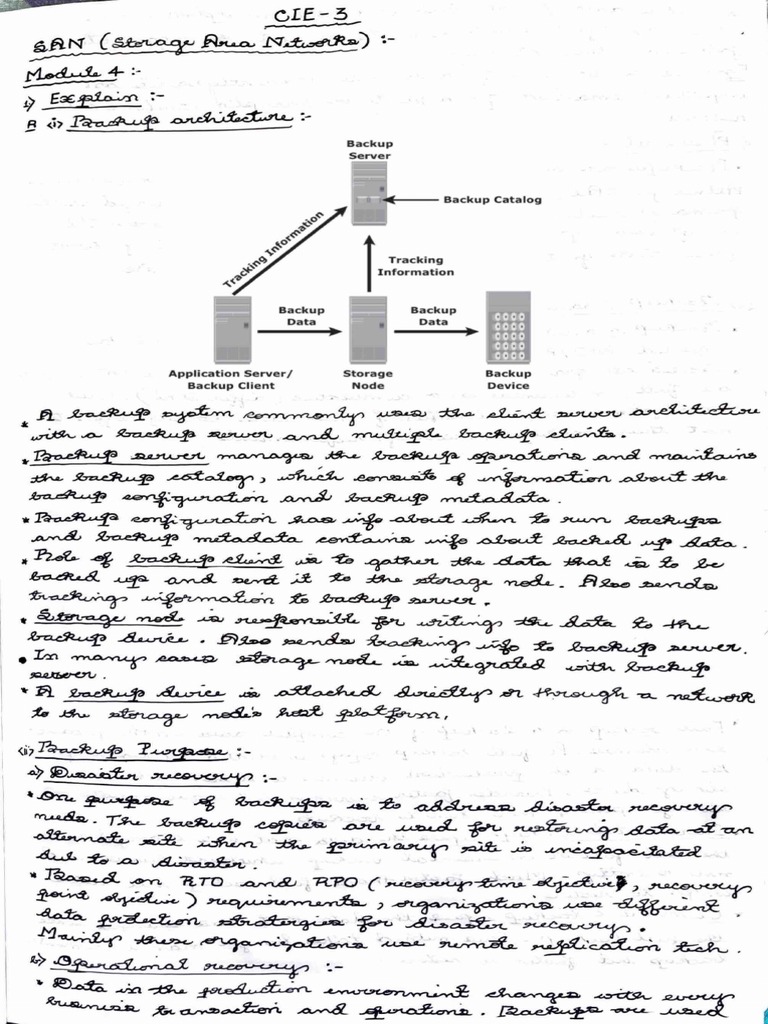 CIE-3
SAN (Storage Area Networks) :-
Module 4 :-
1) Explain :-
A (i) Backup architecture :-
Backup
Server
Backup Catalog
Tracking Information
Tracking
Information
Backup
Data
Backup
Data
Application Server/
Backup Client
Storage
Node
Backup
Device
* A backup system commonly uses the client server architecture
with a backup server and multiple backup clients.
* Backup server manages the backup operations and maintains
the backup catalog, which consists of information about the
backup configuration and backup metadata.
* Backup configuration has info about when to run backups
and backup metadata contains info about backed up data.
* Role of backup client is to gather the data that is to be
backed up and send it to the storage node. Also sends
tracking information to backup server.
* Storage node is responsible for writing the data to the
backup device. Also sends tracking info to backup server.
• In many cases storage node is integrated with backup
server.
* A backup device is attached directly or through a network
to the storage node's host platform.
(ii) Backup Purpose :-
a) Disaster recovery :-
* One purpose of backups is to address disaster recovery
needs. The backup copies are used for restoring data at an
alternate site when the primary site is incapacitated
due to a disaster.
* Based on RTO and RPO (recovery time objective, recovery
point objective) requirements, organizations use different
data protection strategies for disaster recovery.
Mainly these organizations use remote replication tech.
b) Operational recovery :-
* Data in the production environment changes with every
business transaction and operations. Backups are used